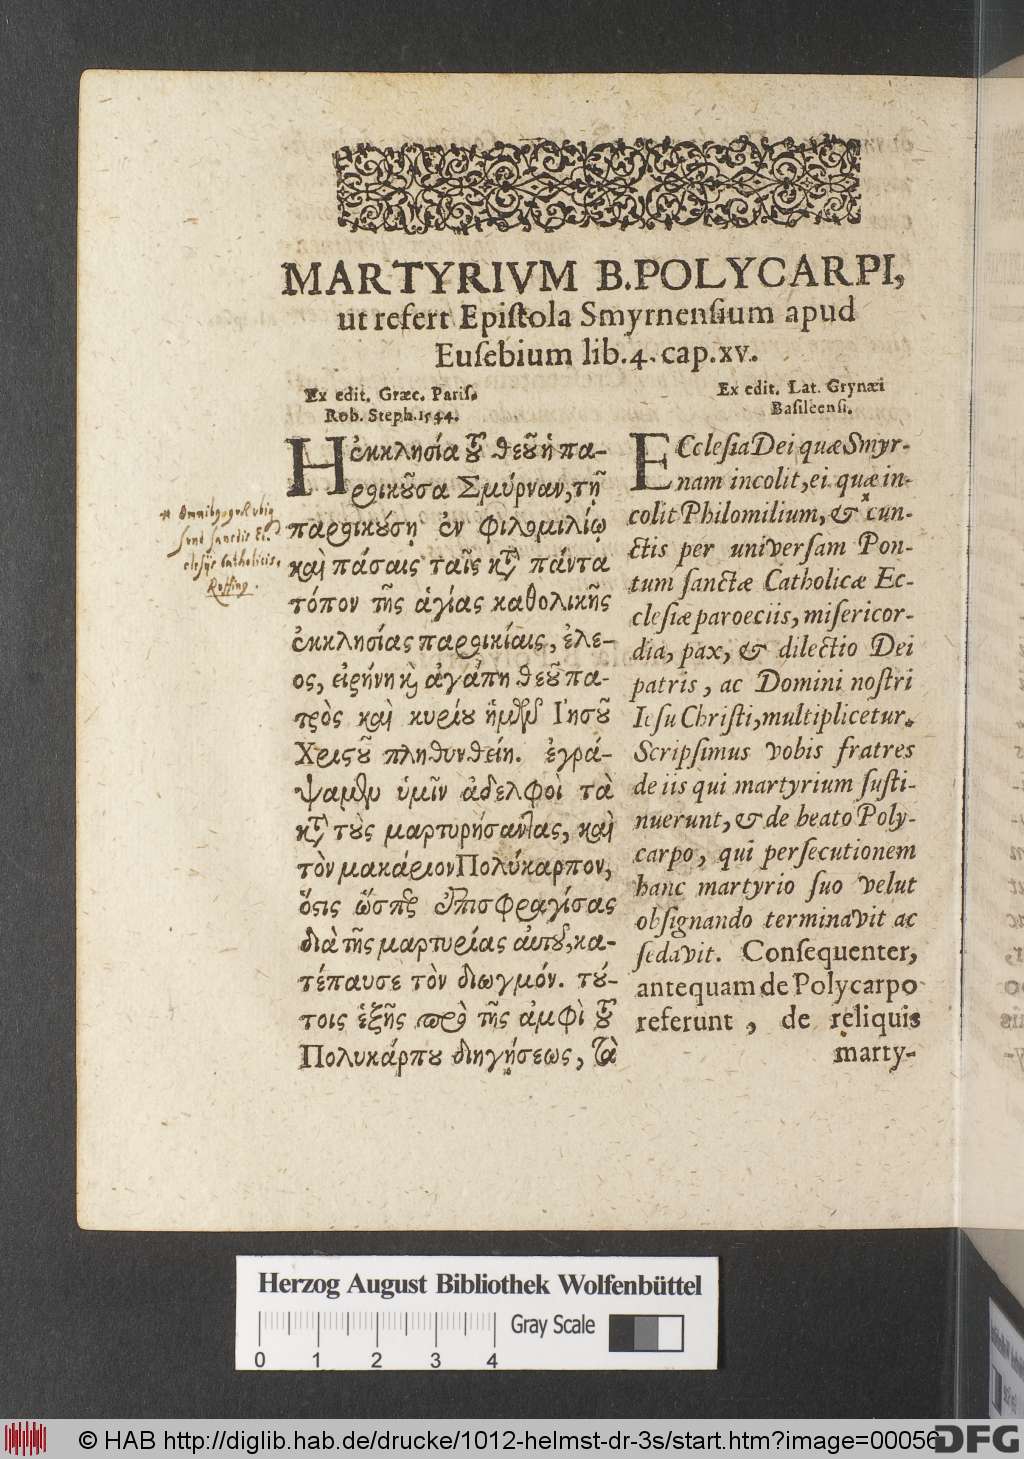 MARTYRIVM B. POLYCARPI,
ut refert Epiſtola Smyrnenſium apud
Euſebium lib. 4. cap. xv.
Ex edit. Græc. Pariſ.
Rob. Steph. 1544.
Ἡ ἐκκλησία τοῦ θεοῦ ἡ πα-
ροικοῦσα Σμύρναν, τῇ
παροικούσῃ ἐν φιλομιλίῳ
καὶ πάσαις ταῖς κατὰ πάντα
τόπον τῆς ἁγίας καθολικῆς
ἐκκλησίας παροικίαις, ἔλε-
ος, εἰρήνη καὶ ἀγάπη θεοῦ πα-
τρὸς καὶ κυρίου ἡμῶν Ἰησοῦ
Χριϛοῦ πληθυνθείη. ἐγρά-
ψαμεν ὑμῖν ἀδελφοὶ τὰ
κατὰ τοὺς μαρτυρήσαντας, καὶ
τὸν μακάριον Πολύκαρπον,
ὅϛις ὥσπερ ἐπισφραγίσας
διὰ τῆς μαρτυρίας αὐτοῦ, κα-
τέπαυσε τὸν διωγμόν. τού-
τοις ἑξῆς πρὸ τῆς ἀμφὶ τοῦ
Πολυκάρπου διηγήσεως, τὰ
Ex edit. Lat. Grynæi
Baſileenſi.
ECcleſia Dei quæ Smyr-
nam incolit, ei quæ in-
colit Philomilium, & cun-
ctis per univerſam Pon-
tum ſanctæ Catholicæ Ec-
cleſiæ paroeciis, miſericor-
dia, pax, & dilectio Dei
patris, ac Domini noſtri
Ieſu Chriſti, multiplicetur.
Scripſimus vobis fratres
de iis qui martyrium ſuſti-
nuerunt, & de beato Poly-
carpo, qui perſecutionem
hanc martyrio ſuo velut
obſignando terminavit ac
ſedavit. Conſequenter,
antequam de Polycarpo
referunt, de reliquis
marty-
Herzog August Bibliothek Wolfenbüttel
Gray Scale
0 1 2 3 4
© HAB http://diglib.hab.de/drucke/1012-helmst-dr-3s/start.htm?image=00056
DFG